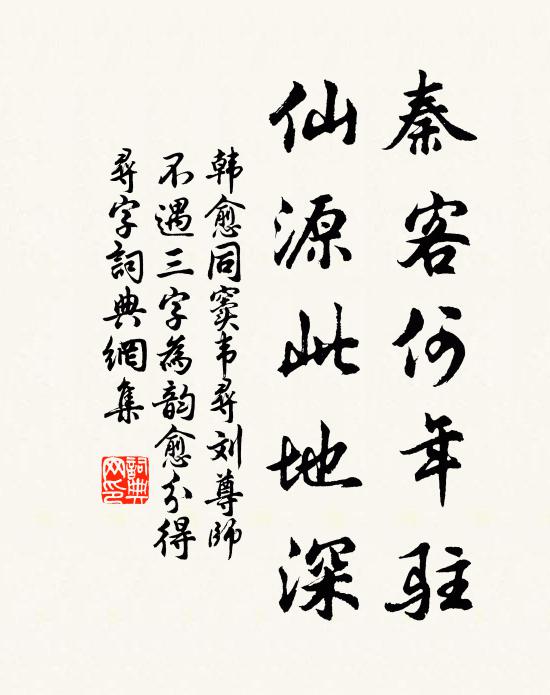 秦客何年驻
仙源此地深
韩愈同窦韦寻刘尊師
不遇三字為韵愈分得
尋字詞典網集
詞典
网印